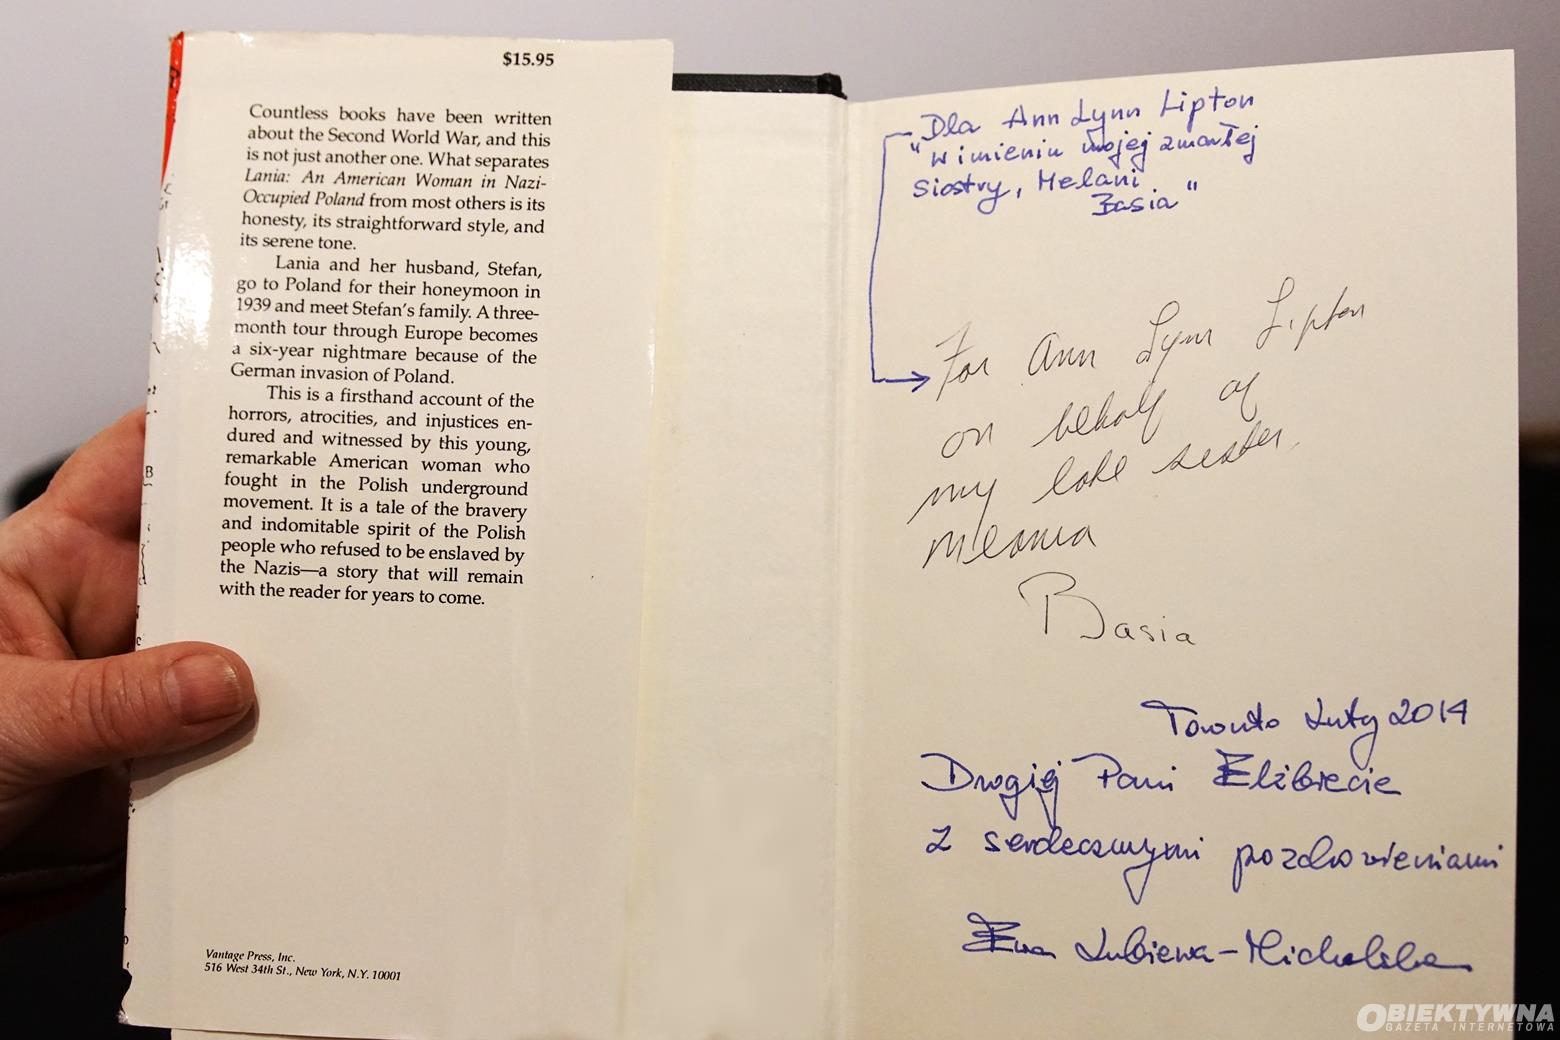 $15.95
Countless books have been written
about the Second World War, and this
is not just another one. What separates
Lania: An American Woman in Nazi-
Occupied Poland from most others is its
honesty, its straightforward style, and
its serene tone.
Lania and her husband, Stefan,
go to Poland for their honeymoon in
1939 and meet Stefan's family. A three-
month tour through Europe becomes
a six-year nightmare because of the
German invasion of Poland.
This is a firsthand account of the
horrors, atrocities, and injustices en-
dured and witnessed by this young,
remarkable American woman who
fought in the Polish underground
movement. It is a tale of the bravery
and indomitable spirit of the Polish
people who refused to be enslaved by
the Nazis—a story that will remain
with the reader for years to come.
Vantage Press, Inc.
516 West 34th St., New York, N.Y. 10001
Dla Ann Lynn Lipton
"w imieniu mojej zmarłej
siostry, Melani
Basia"
For Ann Lynn Lipton
on behalf of
my late sister,
Melania
Basia
Toronto Luty 2014
Drogiej Pani Elżbiecie
z serdecznymi pozdrowieniami
Ewa Lubiewa-Michalska
OBIEKTYWNA
GAZETA INTERNETOWA